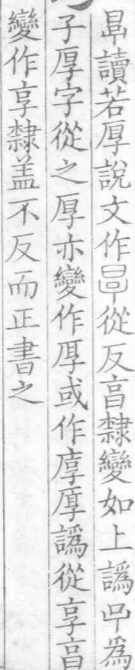 㫗讀若厚說文作𣆪從反亯隸變如上譌㗊爲
子厚字從之厚亦變作厚或作㕆厚譌從享亯
變作享隸蓋不反而正書之